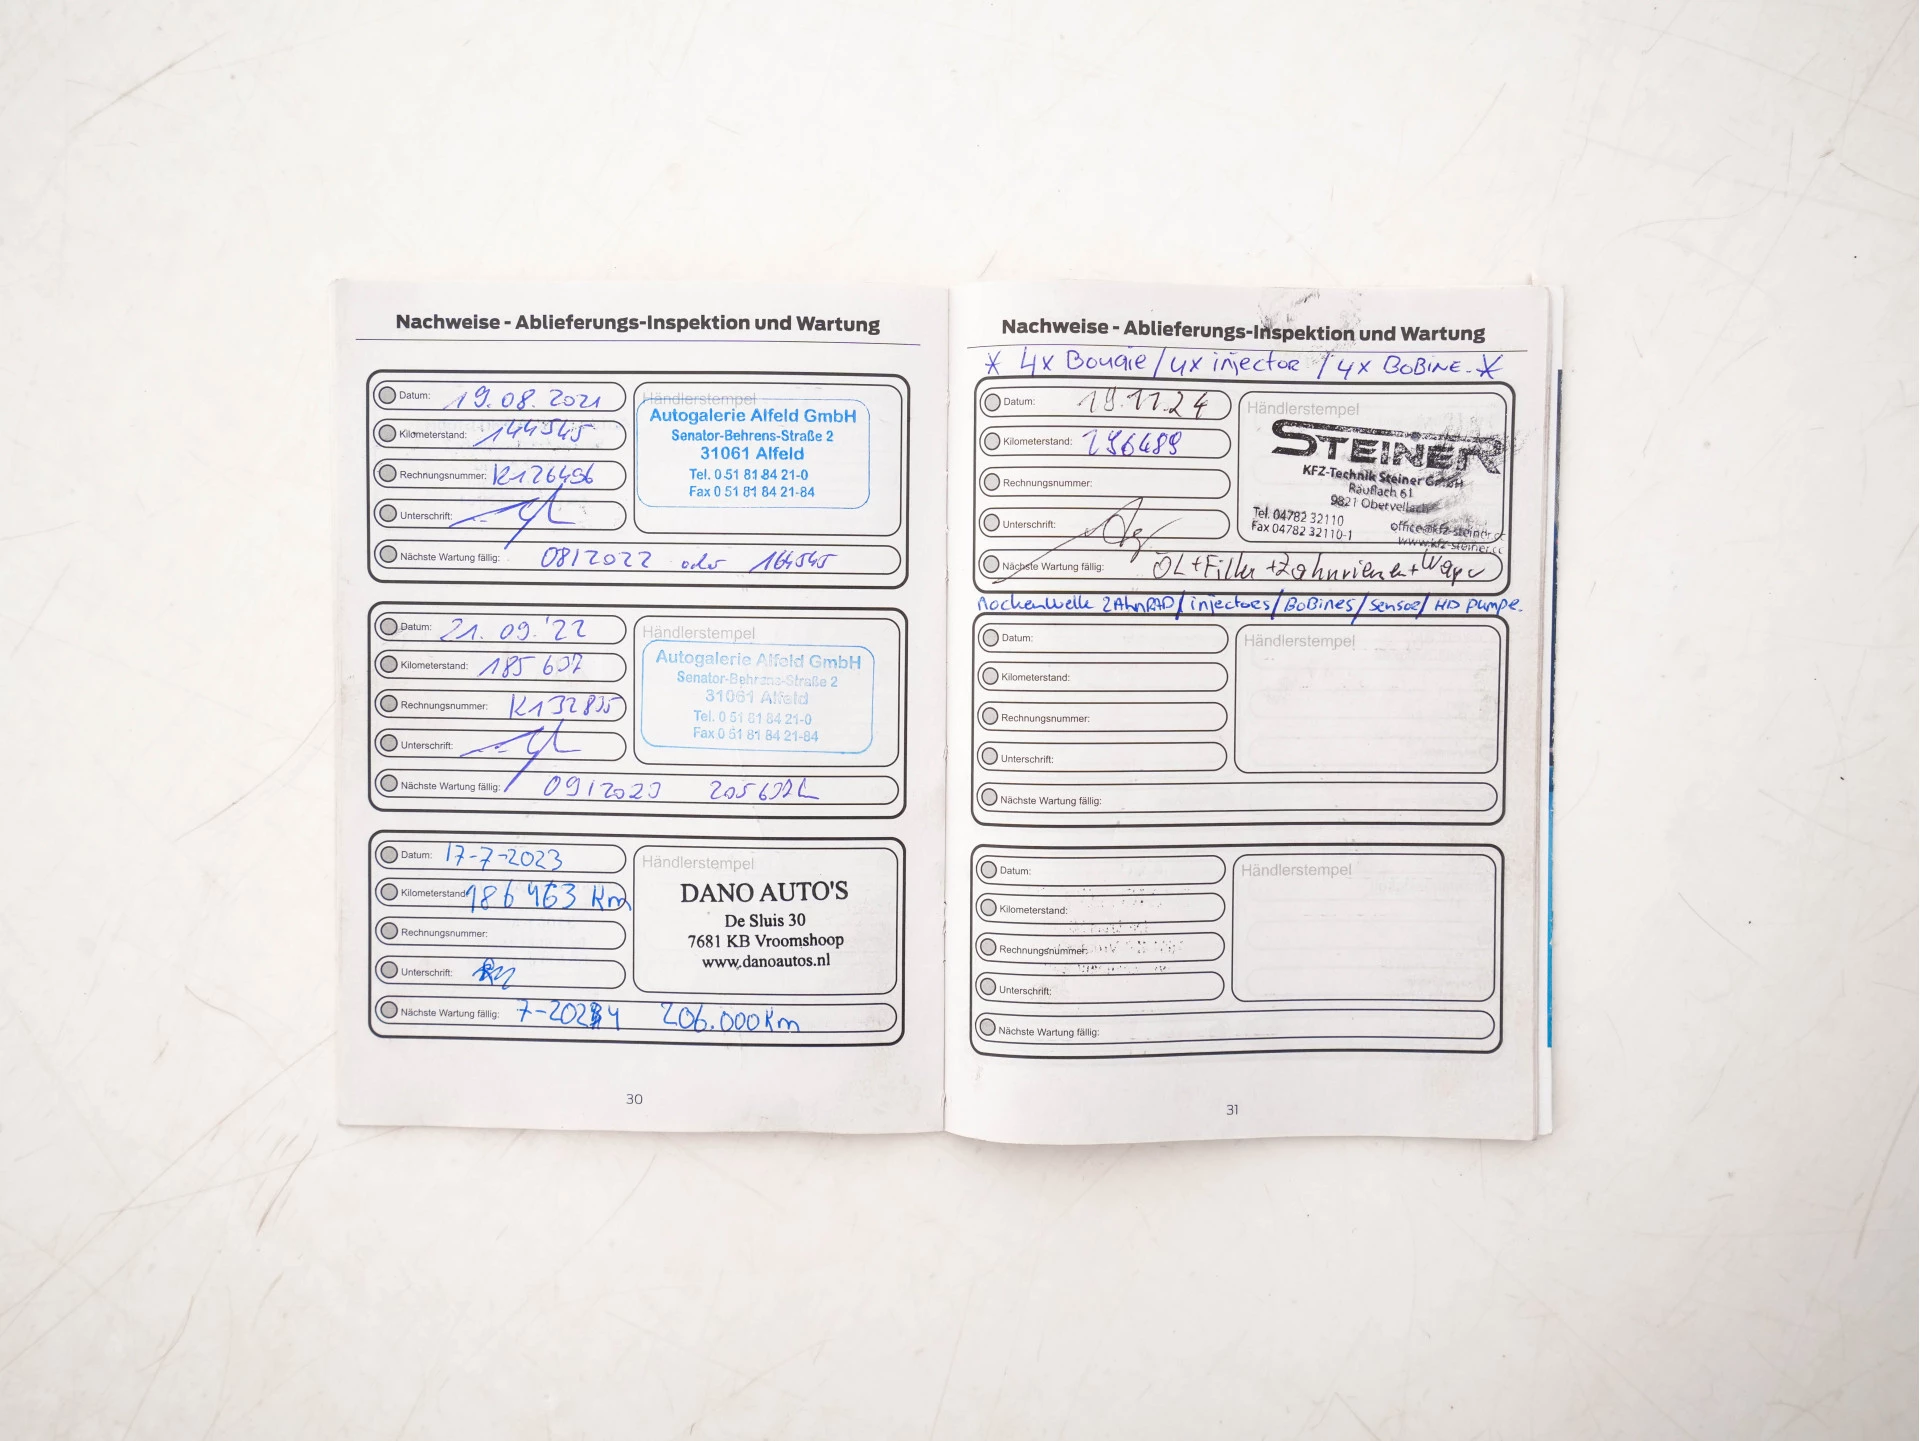 Nachweise - Ablieferungs-Inspektion und Wartung
Datum: 19.08.2021
Kilometerstand: 144545
Rechnungsnummer: K126456
Unterschrift:
Nächste Wartung fällig: 08/2022 oder 164545
Händlerstempel
Autogalerie Alfeld GmbH
Senator-Behrens-Straße 2
31061 Alfeld
Tel. 0 51 81 84 21-0
Fax 0 51 81 84 21-84
Datum: 21.09.'22
Kilometerstand: 185 607
Rechnungsnummer: K132835
Unterschrift:
Nächste Wartung fällig: 09/2023
Händlerstempel
Autogalerie Alfeld GmbH
Senator-Behrens-Straße 2
31061 Alfeld
Tel. 0 51 81 84 21-0
Fax 0 51 81 84 21-84
Datum: 17-7-2023
Kilometerstand: 186 463 Km
Rechnungsnummer:
Unterschrift:
Nächste Wartung fällig: 7-2024 206.000 Km
Händlerstempel
DANO AUTO'S
De Sluis 30
7681 KB Vroomshoop
www.danoautos.nl
30
Nachweise - Ablieferungs-Inspektion und Wartung
* 4x Bougie / 4x injector / 4x BoBiNE. *
Datum: 19.11.24
Kilometerstand: 196489
Rechnungsnummer:
Unterschrift:
Nächste Wartung fällig: ÖL + Filter + Zahnriemen +
Händlerstempel
STEINER
KFZ-Technik Steiner GmbH
Rauflach 61
9821 Obervellach
Tel. 04782 32110
Fax 04782 32110-1
office@kfz-steiner.cc
www.kfz-steiner.cc
Nockenwelle ZAhnRAD / injectors / BoBines / sensor / HD pumpe.
Datum:
Kilometerstand:
Rechnungsnummer:
Unterschrift:
Nächste Wartung fällig:
Händlerstempel
Datum:
Kilometerstand:
Rechnungsnummer:
Unterschrift:
Nächste Wartung fällig:
Händlerstempel
31